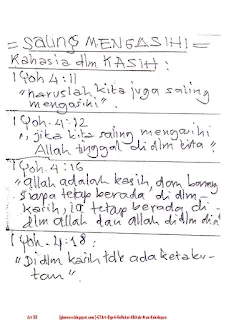 = SaLiNg MENGASIHI =
Rahasia dlm KASIH:
1 Yoh. 4:11
"haruslah kita juga saling
mengasihi".
1 Yoh. 4:12
"jika kita saling mengasihi
Allah tinggal di dlm kita".
1 Yoh. 4:16
"allah adalah kasih, dan barang
siapa tetap berada di dlm
kasih, ia tetap berada di
dlm allah dan allah di dlm dia"
1 Yoh. 4:18:
"Di dlm kasih tdk ada ketaku-
tan"